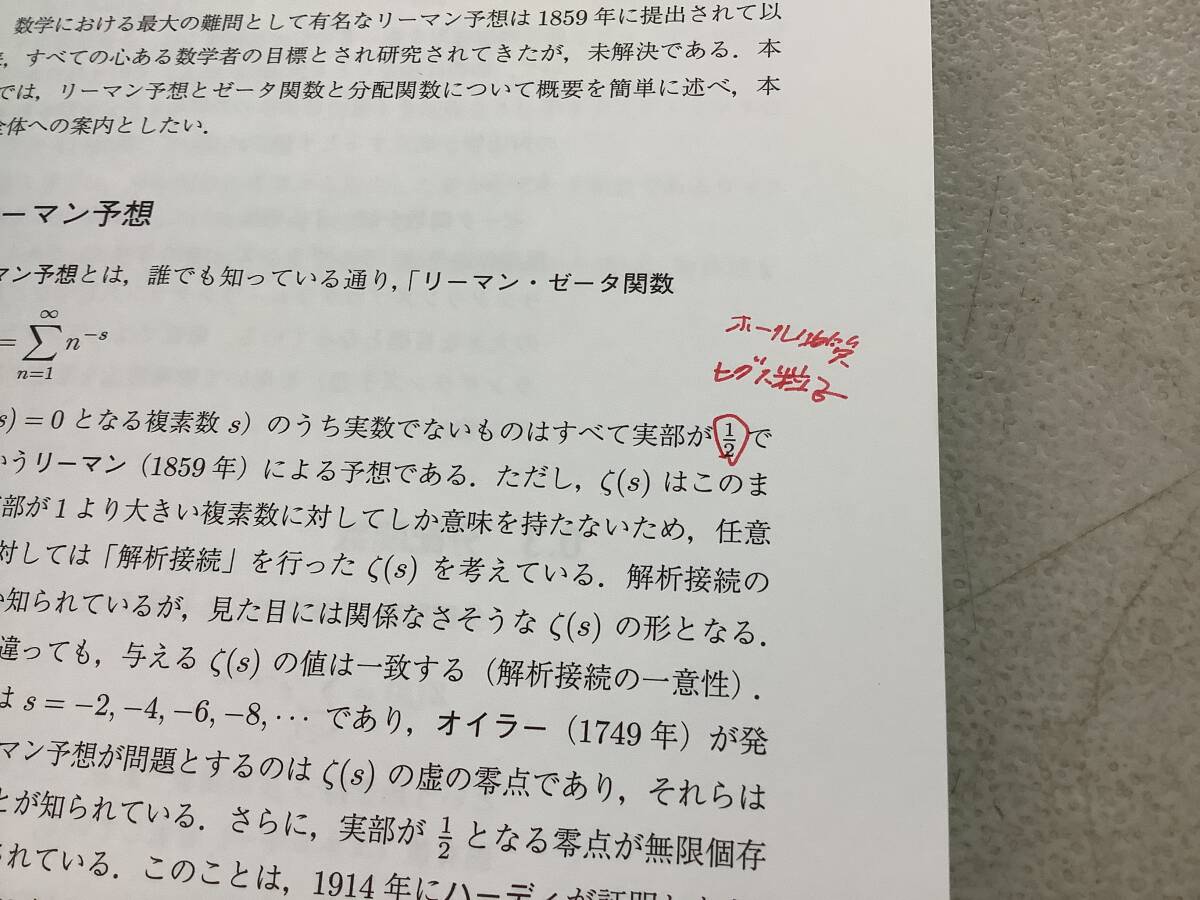 数学における最大の難問として有名なリーマン予想は 1859 年に提出されて以
, すべての心ある数学者の目標とされ研究されてきたが, 未解決である. 本
では, リーマン予想とゼータ関数と分配関数について概要を簡単に述べ, 本
全体への案内としたい.
ーマン予想
マン予想とは, 誰でも知っている通り,「リーマン・ゼータ関数
= ∑ n=1 ∞ n^{-s}
ヒグス粒子
s) = 0 となる複素数 s) のうち実数でないものはすべて実部が 1/2 で
いうリーマン (1859 年) による予想である. ただし, ζ(s) はこのま
部が 1 より大きい複素数に対してしか意味を持たないため, 任意
対しては「解析接続」を行った ζ(s) を考えている. 解析接続の
知られているが, 見た目には関係なさそうな ζ(s) の形となる.
違っても, 与える ζ(s) の値は一致する (解析接続の一意性).
は s = −2, −4, −6, −8, ··· であり, オイラー (1749 年) が発
マン予想が問題とするのは ζ(s) の虚の零点であり, それらは
とが知られている. さらに, 実部が 1/2 となる零点が無限個存
れている. このことは, 1914 年にハーディが証明し